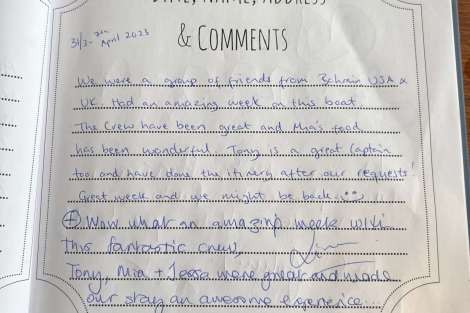 DATE, NAME, ADDRESS
& COMMENTS
31/3 - 7th April 2023
We were a group of friends from Bahrain USA &
UK Had an amazing week on this boat.
The Crew have been great and Mia's food
has been wonderful. Tony is a great captain
too and have done the itinery after our requests!
Great week and we might be back
+ Wow what an amazing week with
this fantastic crew,
Tony, Mia + Jessa were great and made
our stay an awesome experience...